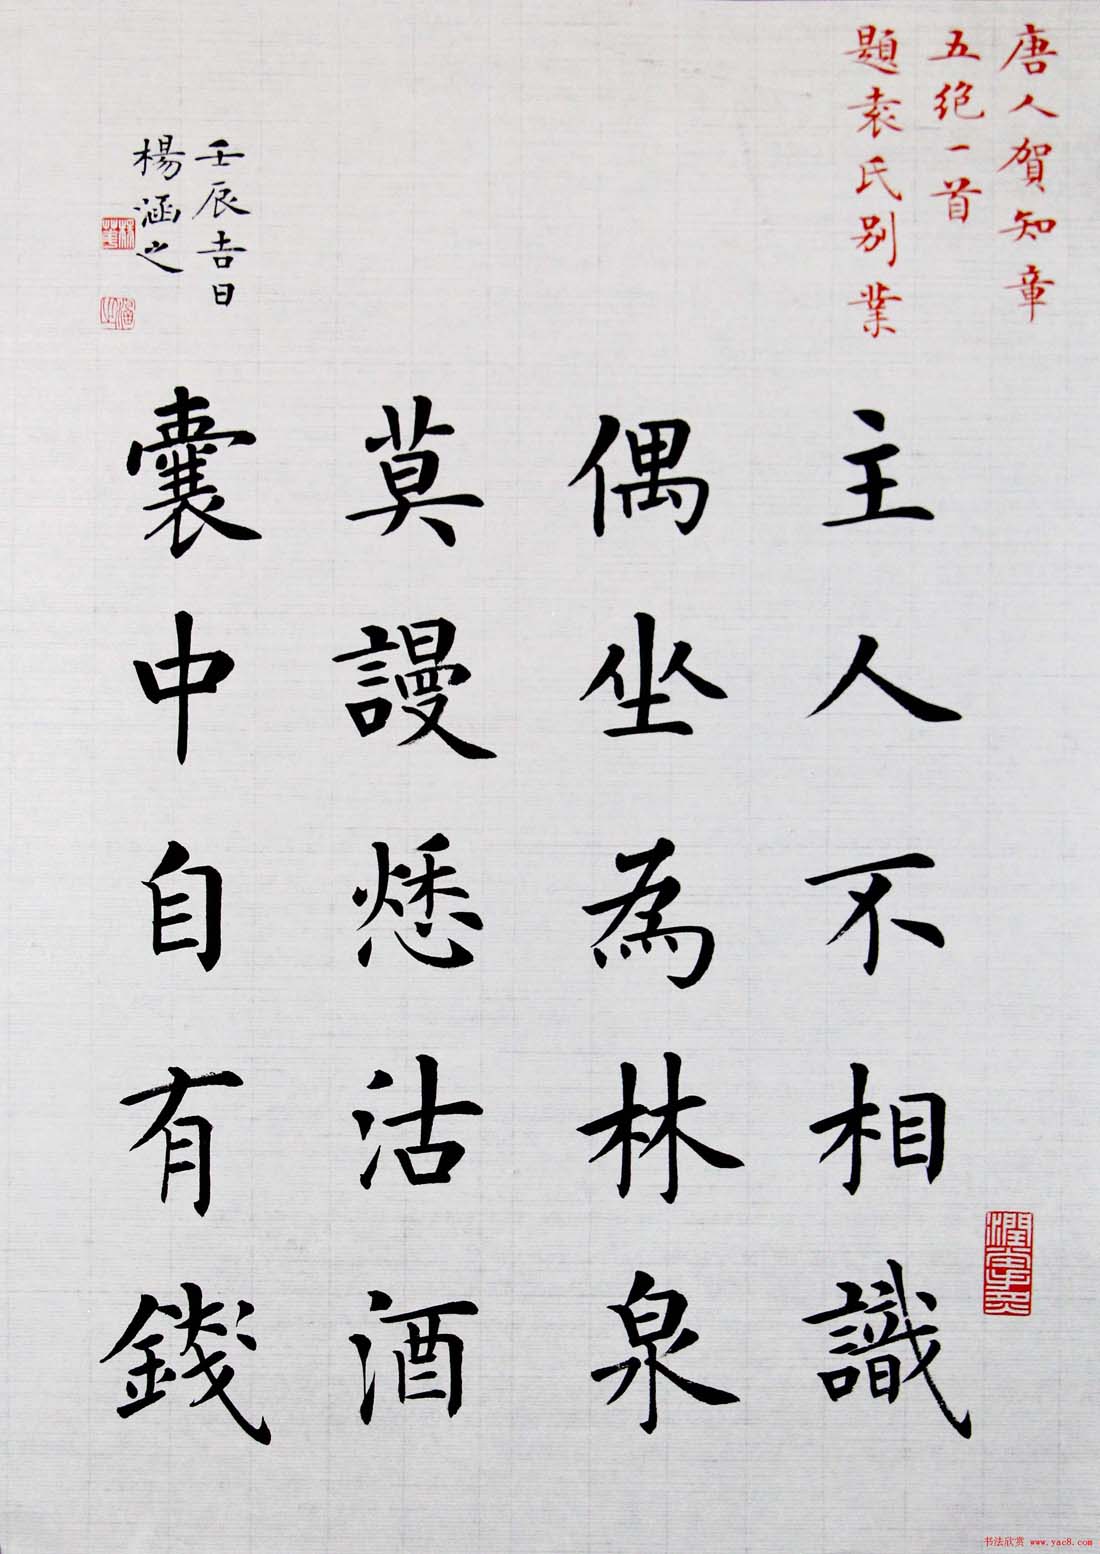 唐人賀知章
五絶一首
題袁氏别業
主人不相識
偶坐為林泉
莫謾愁沽酒
囊中自有錢
壬辰吉日
楊涵之
书法欣赏 www.yac8.com